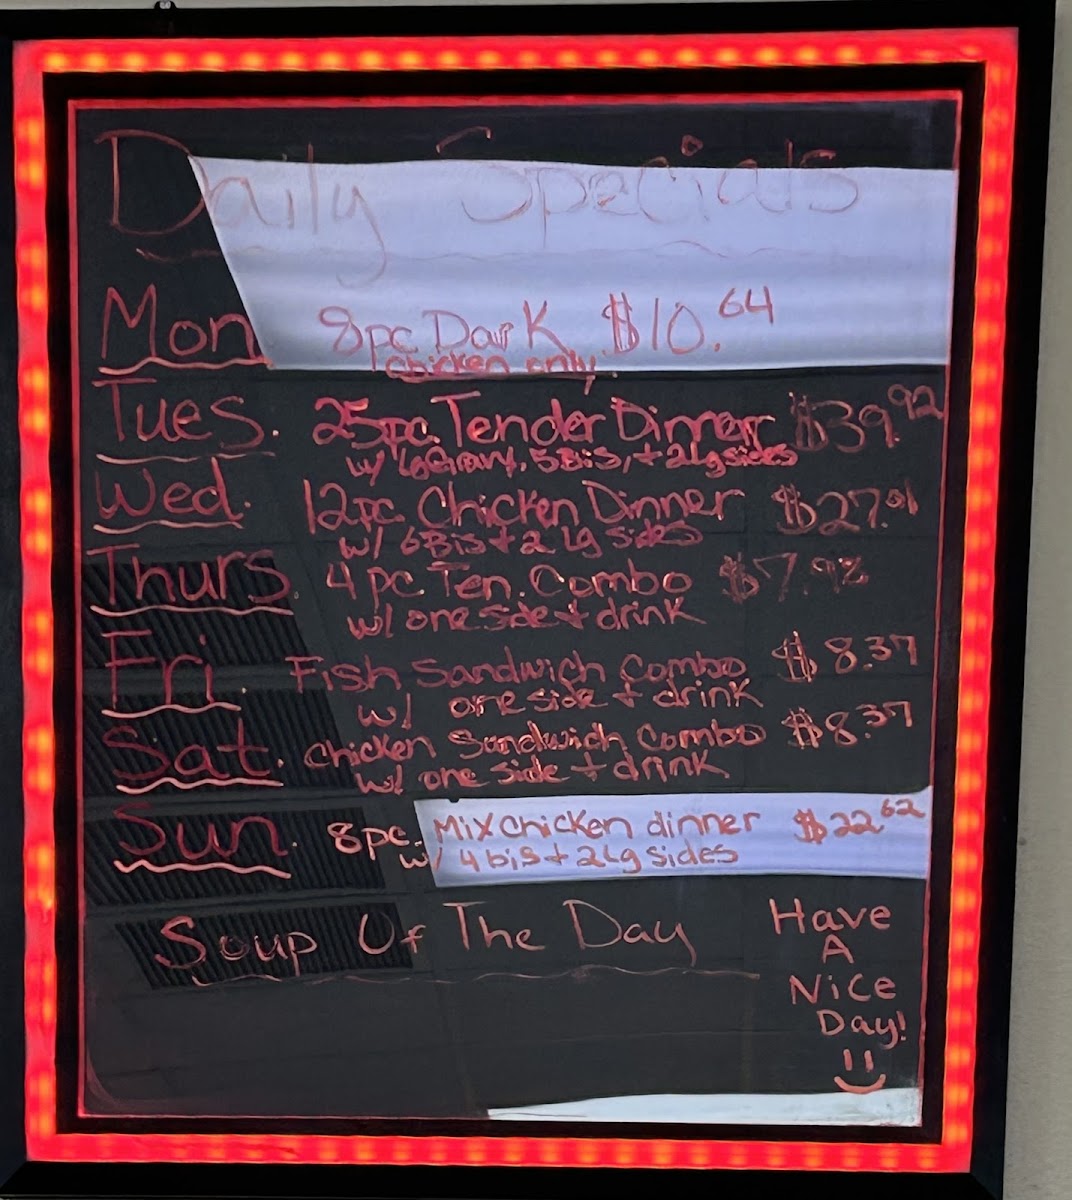 Daily Specials
Mon 8pc Dark $10.64
chicken only
Tues. 25pc. Tender Dinner $39.92
w/ Gravy, 5 Bis, + 2 lg sides
Wed. 12pc Chicken Dinner $27.01
w/ 6 Bis + 2 lg sides
Thurs. 4 pc Ten. Combo $7.98
w/ one side + drink
Fri. Fish Sandwich Combo $8.37
w/ one side + drink
Sat. Chicken Sandwich Combo $8.37
w/ one side + drink
Sun. 8pc. Mix Chicken dinner $22.62
w/ 4 bis + 2 Lg sides
Soup Of The Day
Have
A
Nice
Day!